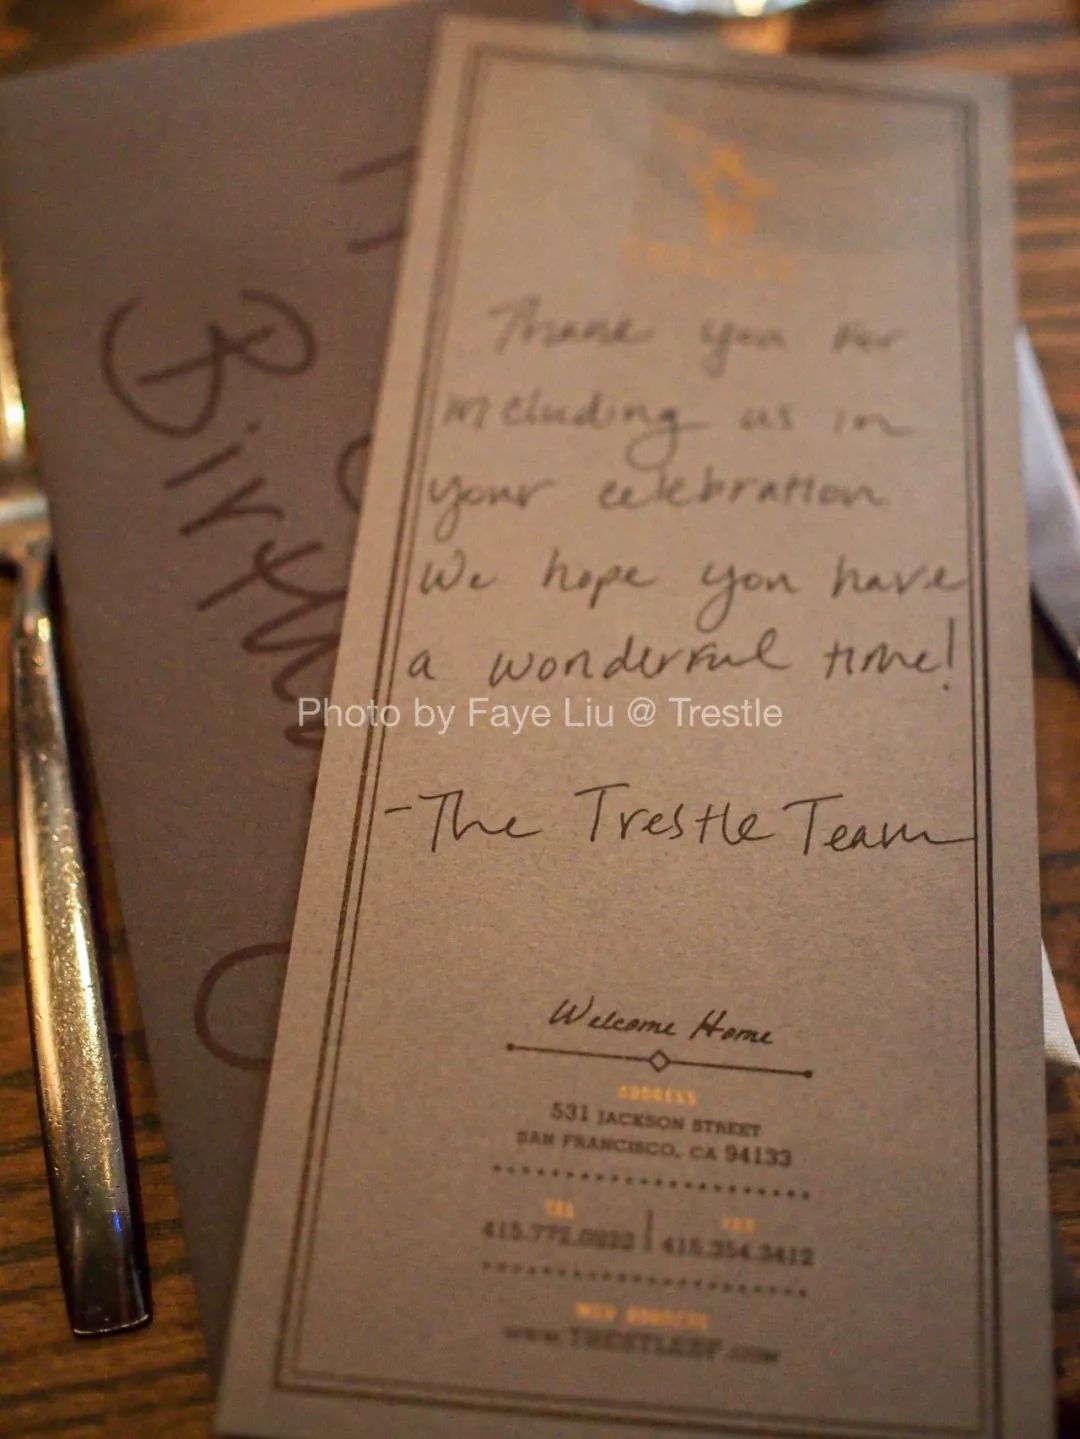 Birth
Thank you for
including us in
your celebration
We hope you have
a wonderful time!
Photo by Faye Liu @ Trestle
-The Trestle Team
Welcome Home
ADDRESS
531 JACKSON STREET
SAN FRANCISCO, CA 94133
TEL FAX
415.772.0922 | 415.354.3412
WEB ADDRESS
www.TRESTLESF.com